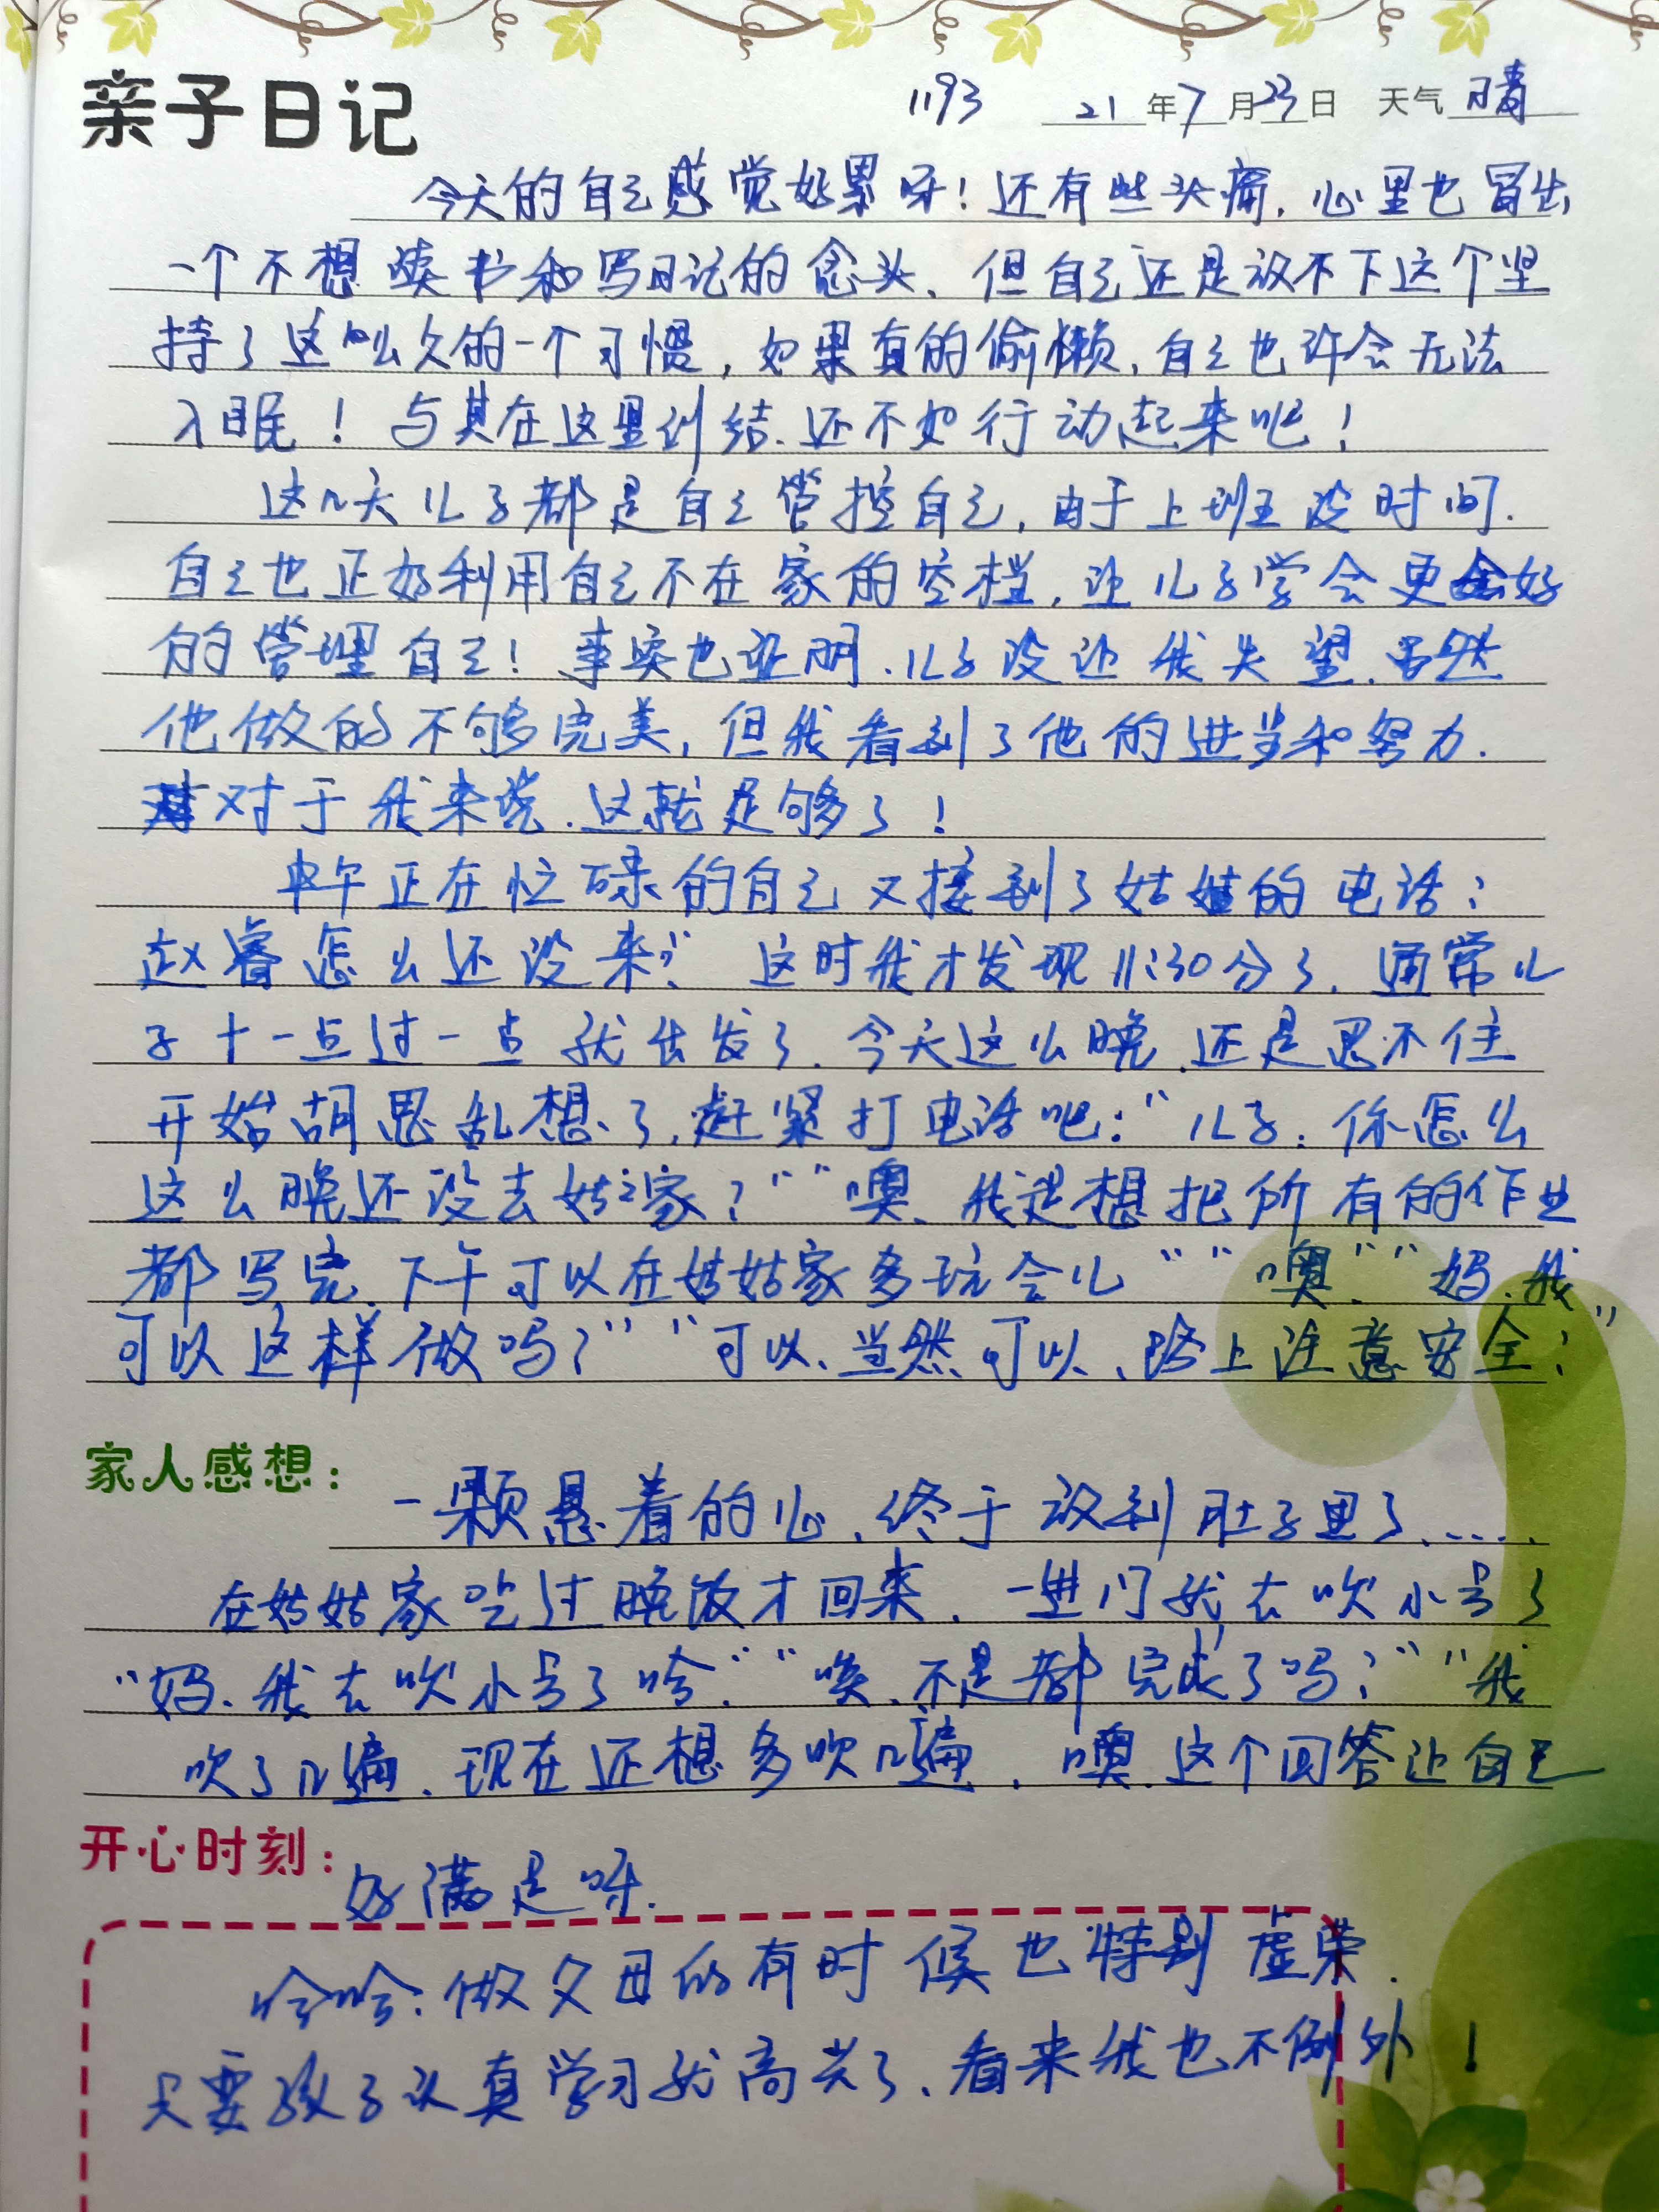 亲子日记 1193 21年7月23日 天气晴
今天的自己感觉好累呀！还有些头痛，心里也冒出
一个不想读书和写日记的念头、但自己还是放不下这个坚
持了这么久的一个习惯，如果真的偷懒，自己也许会无法
入眠！与其在这里纠结、还不如行动起来吧！
这几天儿子都是自己管控自己，由于上班没时间.
自己也正好利用自己不在家的空档，让儿子学会更好
的管理自己！事实也证明、儿子没让我失望、虽然
他做的不够完美，但我看到了他的进步和努力.
对于我来说、这就足够了！
中午正在忙碌的自己又接到了姑姑的电话：
赵睿怎么还没来？” 这时我才发现11:30分了、通常儿
子十一点过一点就出发了、今天这么晚、还是忍不住
开始胡思乱想了，赶紧打电话吧：“儿子：你怎么
这么晚还没去姑姑家？”“噢、我是想把所有的作业
都写完、下午可以在姑姑家多玩会儿”“噢”“妈、我
可以这样做吗？”“可以、当然可以、路上注意安全！”
家人感想：
一颗悬着的心、终于放到肚子里了......
在姑姑家吃过晚饭才回来、一进门就去吹小号了
“妈、我去吹小号了哈”“唉、不是都完成了吗？”“我
吹了几遍、现在还想多吹几遍、噢、这个回答让自己
开心时刻：
好满足呀.
哈哈：做父母的有时候也特别虚荣.
只要孩子认真学习就高兴了、看来我也不例外！